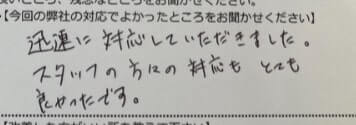 【今回の弊社の対応でよかったところをお聞かせください】
迅速に対応していただきました。
スタッフの方々の対応もとても
良かったです。